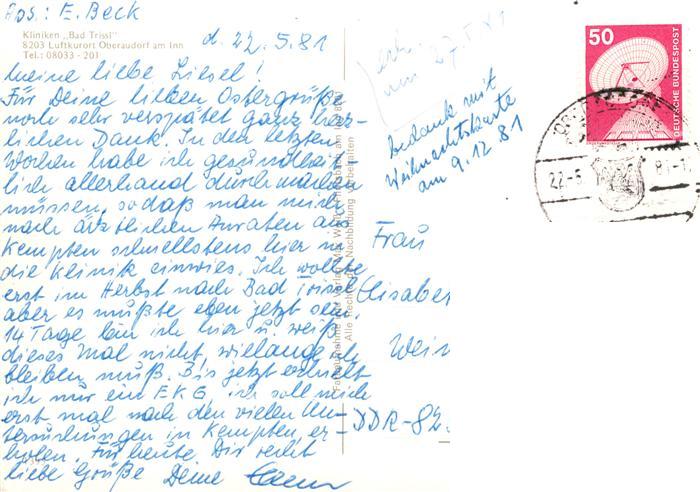 Abs.: E. Beck
Kliniken „Bad Trissl"
8203 Luftkurort Oberaudorf am Inn
Tel.: 08033 - 201
d. 22.5.81
Meine liebe Liesel!
Für Deine lieben Ostergrüße
noch sehr verspätet ganz herz-
lichen Dank. In den letzten
Wochen habe ich gesundheit-
lich allerhand durchmachen
müssen, so daß man mich
nach ärztlichen Anraten aus
Kempten schnellstens hier in
die Klinik einwies. Ich wollte
erst im Herbst nach Bad Trissl
aber es mußte eben jetzt sein.
14 Tage bin ich hier u. weiß
dieses mal nicht, wielange ich
bleiben muß. Bis jetzt erhielt
ich nur ein EKG, ich soll mich
erst mal nach den vielen Un-
tersuchungen in Kempten, er-
holen. Für heute Dir recht
liebe Grüße Deine
erh.
am 27.5.81
bedankt mit
Weihnachtskarte
am 9.12.81
Alle Rechte, Nachbildung vorbehalten
50
DEUTSCHE BUNDESPOST
22.-5.
81-1
Frau
Elisabe
Wei
DDR-82